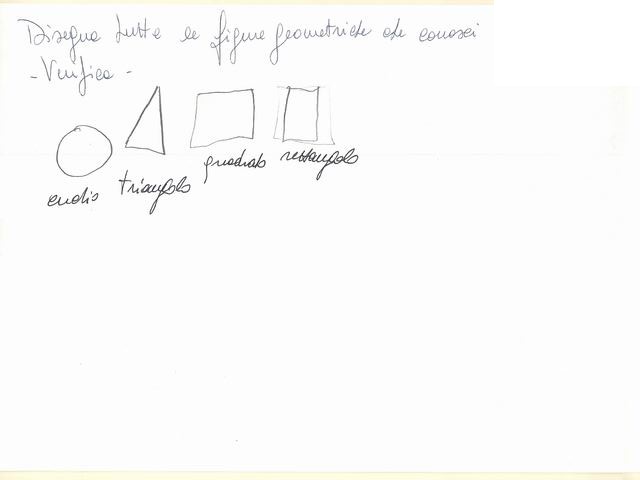 Disegna tutte le figure geometriche che conosci
- Verifica -
cerchio triangolo quadrato rettangolo